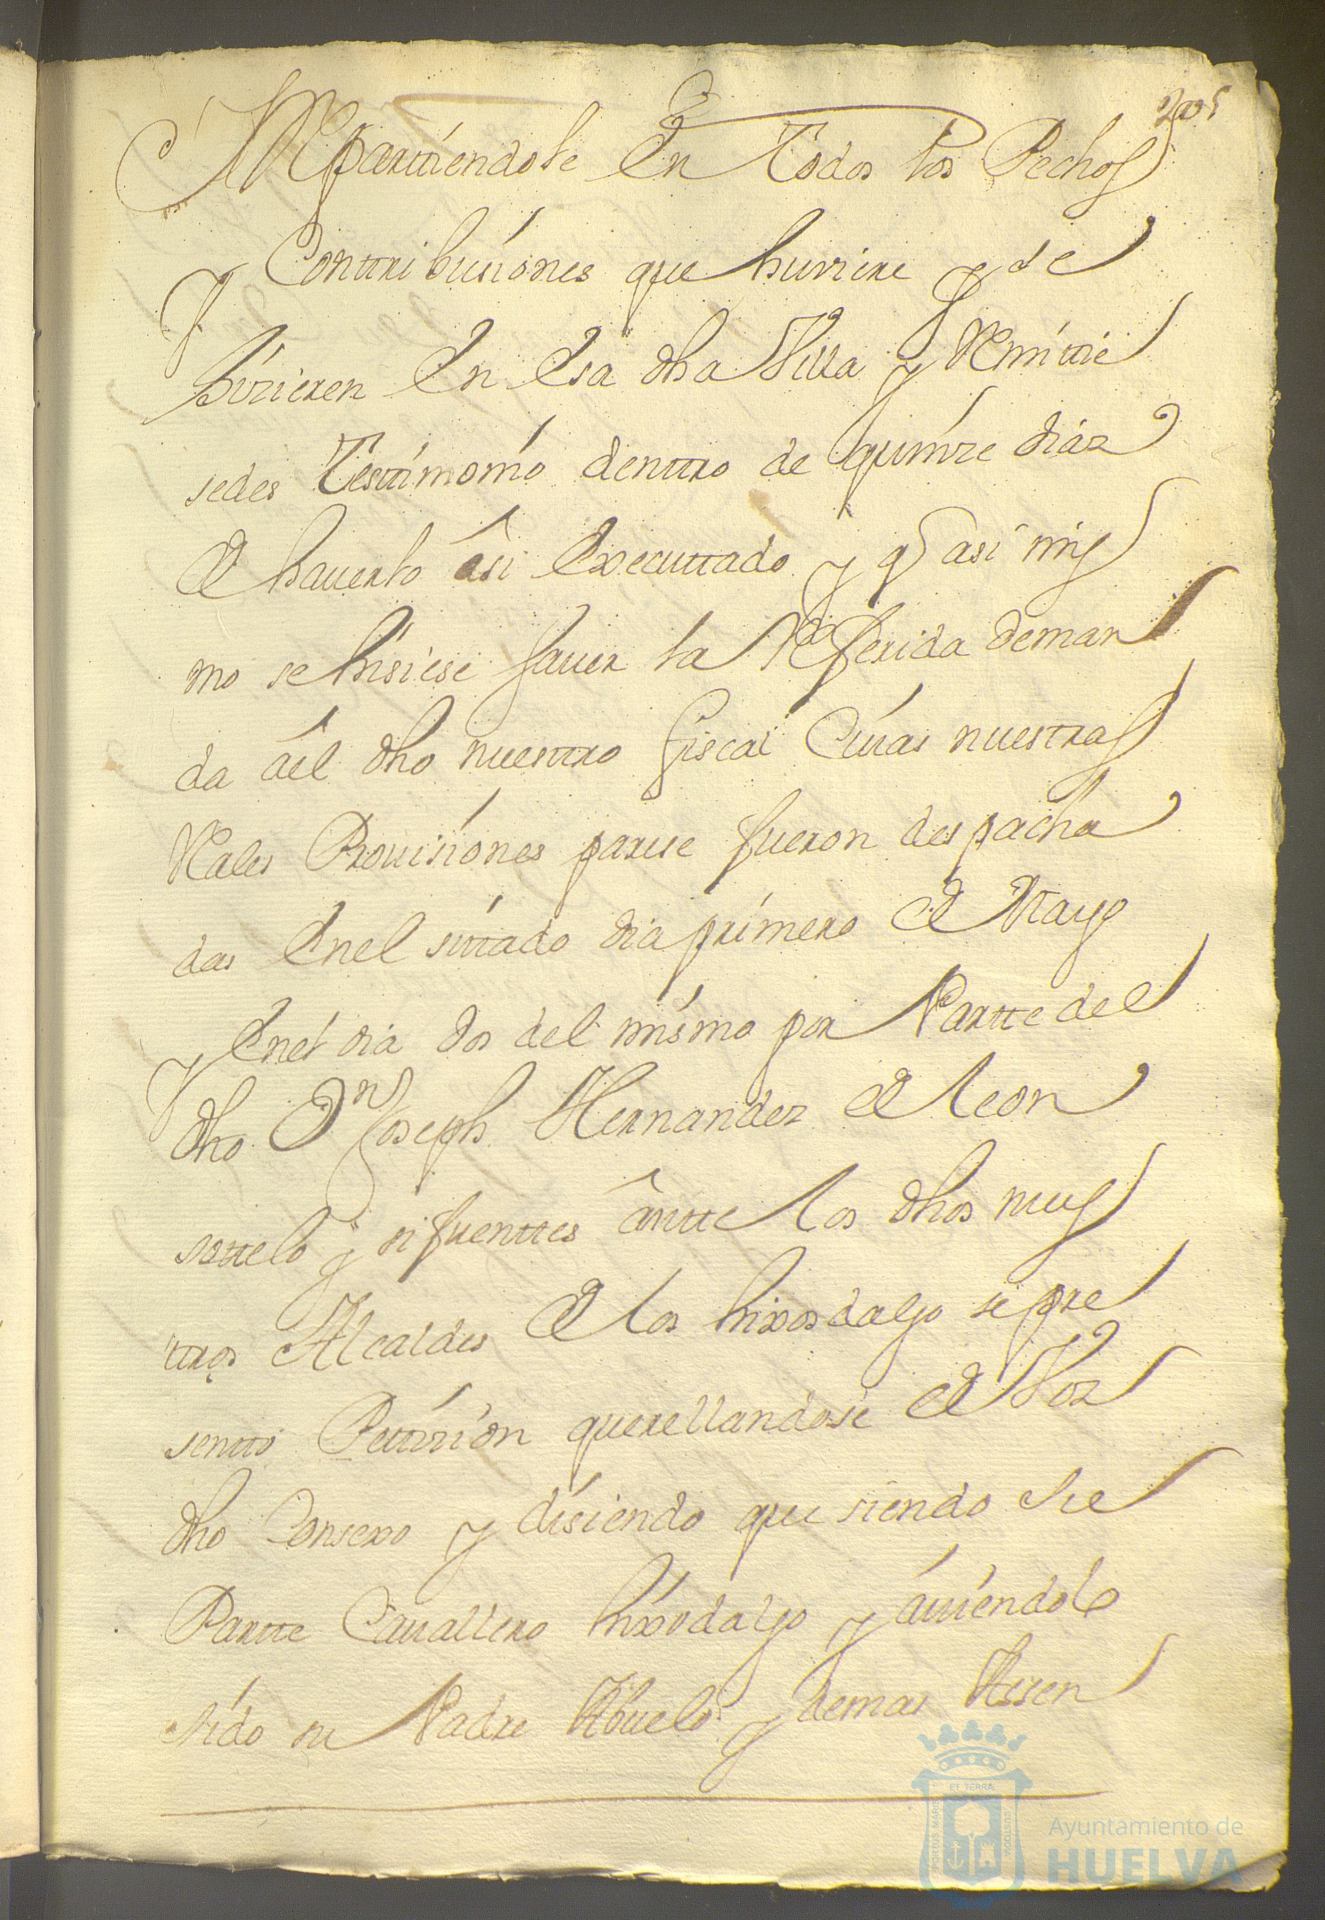 Repartiendole En todos los Pechos
y Contribusiones que huviere y se
hizieren En Esa dha Villa y Remitie
sedes Testimonio denttro de quinze diaz
de haverlo âsi Executtado y q asi mis
mo se hisiese saver la Referida deman
da âel dho nuesttro fiscal Cuias nuestras
Rales Provisiones parese fueron despacha
das Enel sittado dia primero de Mayo
y Enel dia dos del mismo por Partte del
dho Dn Joseph Hernandez de leon
sottelo y sifuenttes ântte los dhos nues
ttros Alcaldes de los hixosdalgo se pre
sentto Pettizion querellandose de Voz
dho Consexo y disiendo que siendo Su
Partte Cavallero hixodalgo y aviendolo
sido su Padre Abuelo y demas Assen
Ayuntamiento de
HUELVA
ET TERRA